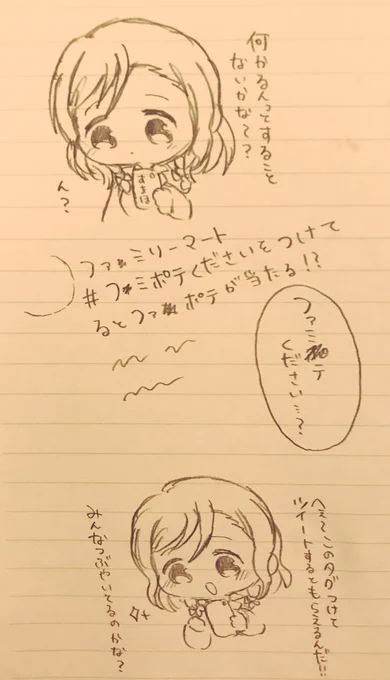 何かるんってすること
ないかな〜?
すまほ
ん?
ファミリーマート
#ファミポテくださいをつけて
るとファミポテが当たる!?
ファミポテ
ください…?
へぇ〜このタグつけて
ツイートするともらえるんだ…
みんなつぶやいてるのかな?